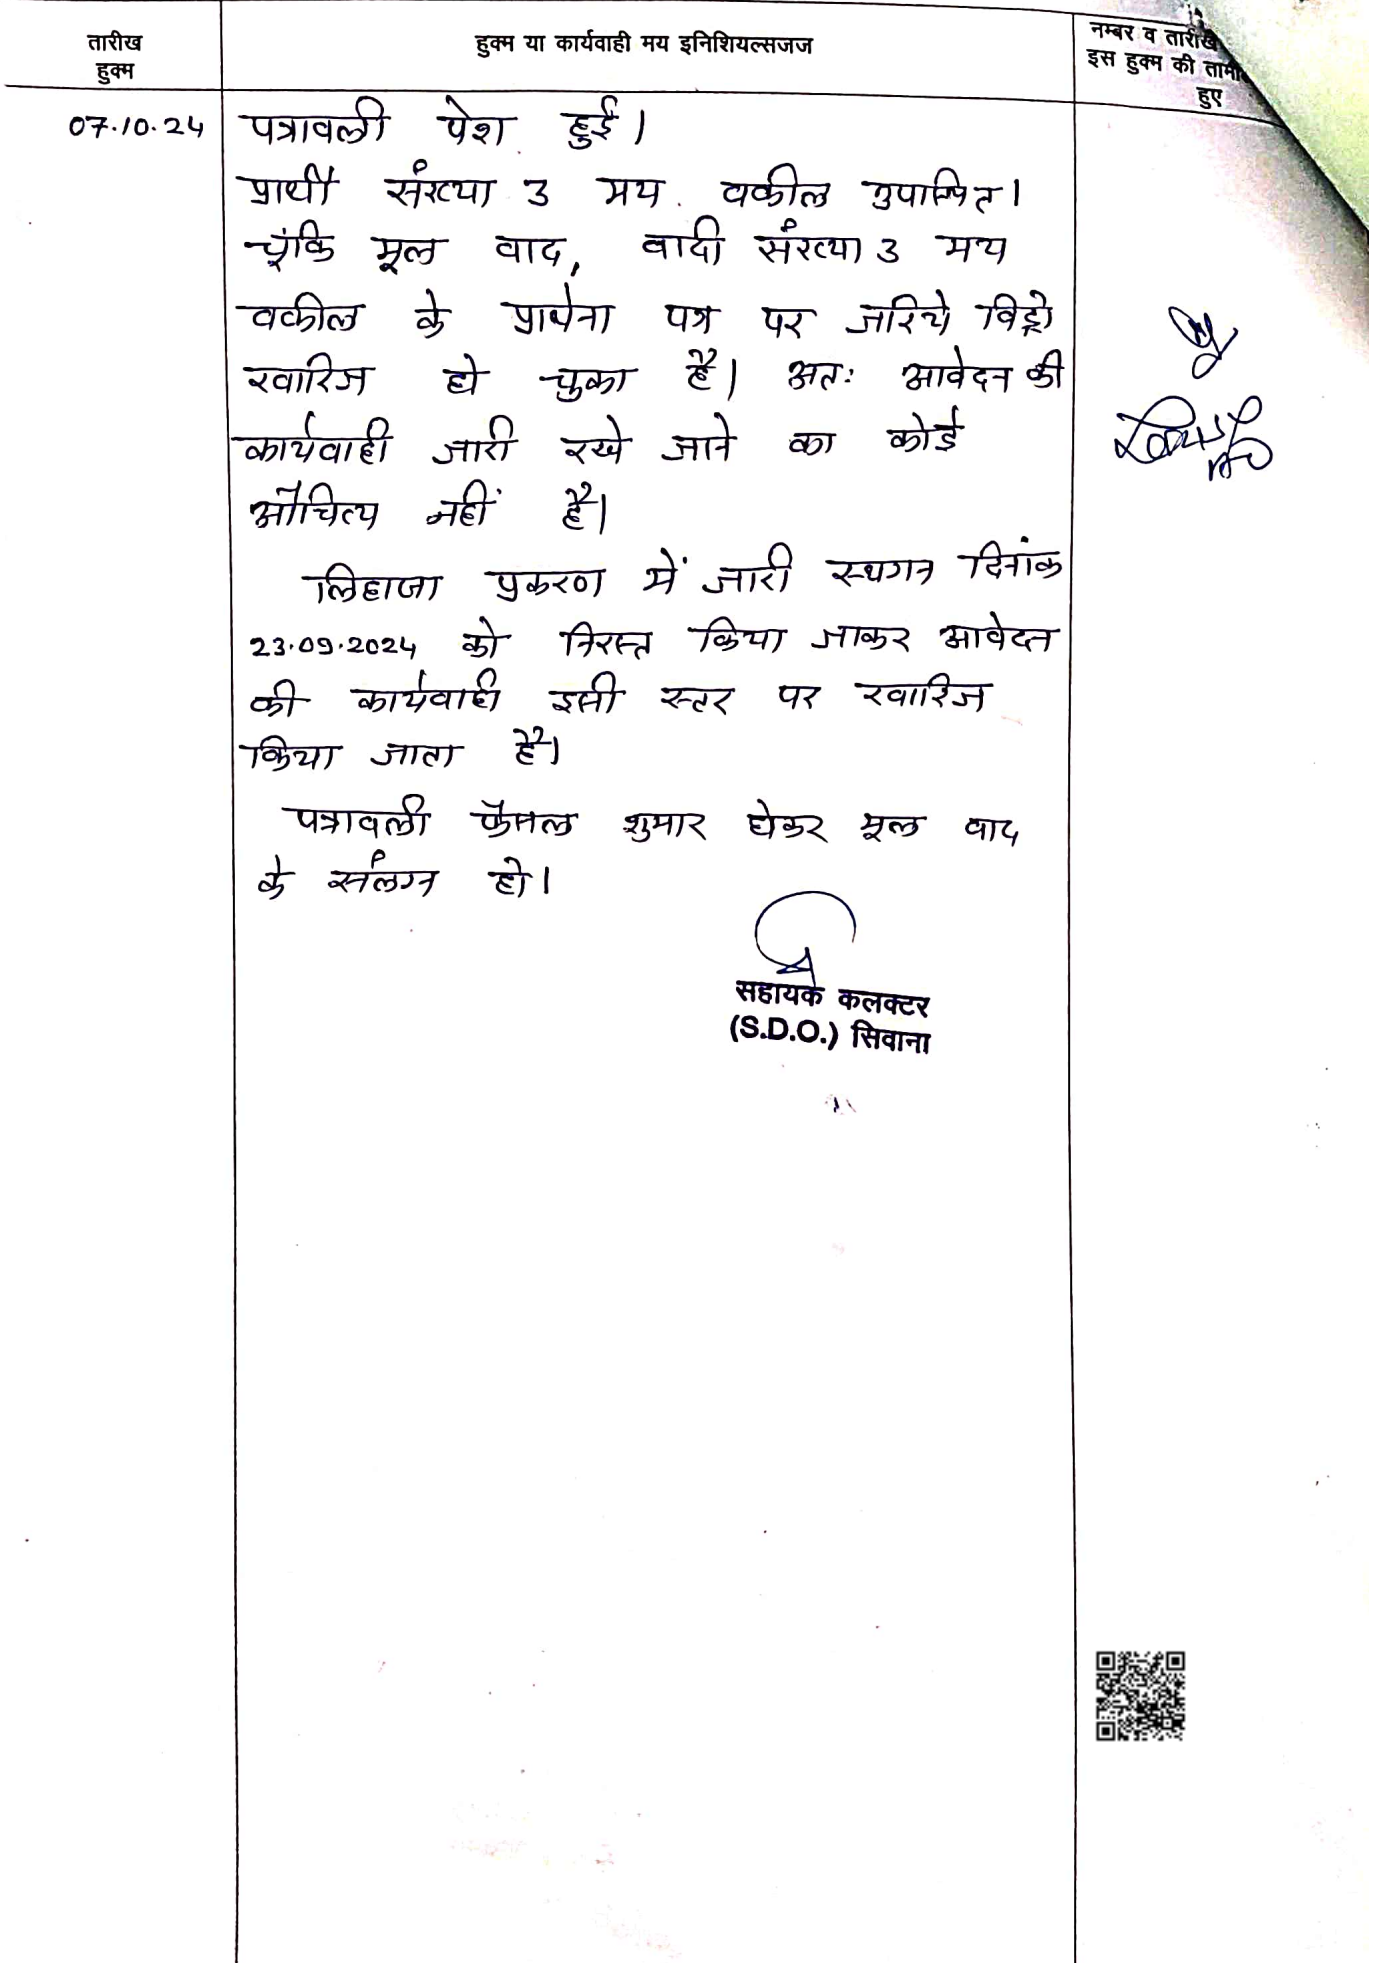 तारीख
हुक्म
हुक्म या कार्यवाही मय इनिशियल्सजज
नम्बर व तारीख
इस हुक्म की तामी
हुए
07.10.24
पत्रावली पेश हुई।
प्रार्थी संख्या 3 मय वकील उपस्थित।
चूंकि मूल वाद, वादी संख्या 3 मय
वकील के प्रार्थना पत्र पर जरिये विड्रो
खारिज हो चुका है। अतः आवेदन की
कार्यवाही जारी रखे जाने का कोई
औचित्य नहीं है।
लिहाजा प्रकरण में जारी स्थगन दिनांक
23.09.2024 को निरस्त किया जाकर आवेदन
की कार्यवाही इसी स्तर पर खारिज
किया जाता है।
पत्रावली फैसल शुमार होकर मूल वाद
के संलग्न हो।
सहायक कलक्टर
(S.D.O.) सिवाना